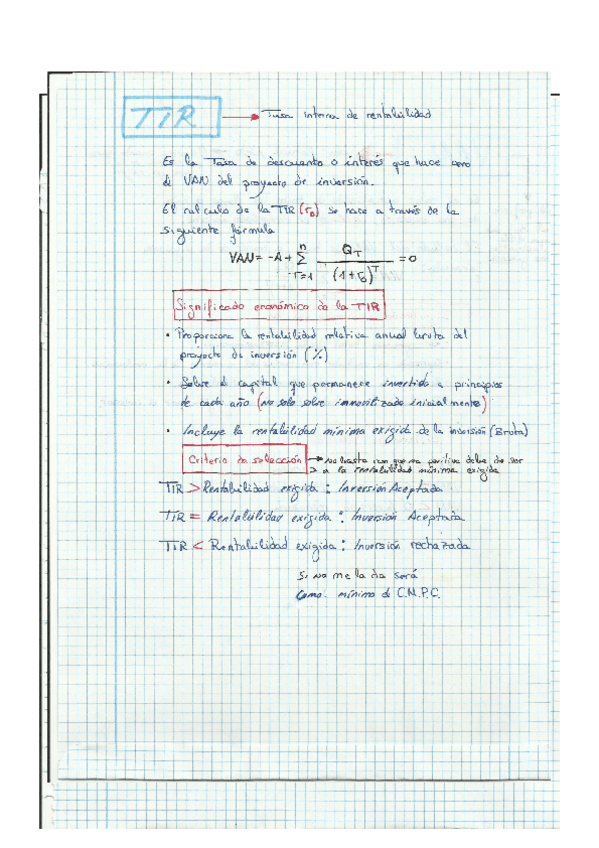 TIR → Tasa interna de rentabilidad
Es la Tasa de descuento o interés que hace cero
el VAN del proyecto de inversión.
El calculo de la TIR (r₀) se hace a través de la
siguiente fórmula
VAN = -A + Σ (T=1, n) Q_T / (1+r₀)^T = 0
Significado económico de la TIR
• Proporciona la rentabilidad relativa anual bruta del
proyecto de inversión (%)
• Sobre el capital que permanece invertido a principios
de cada año (no solo sobre inmovilizado inicialmente)
• Incluye la rentabilidad mínima exigida de la inversión (Bruta)
Criterio de selección → No basta con que sea positiva debe de ser
> a la rentabilidad mínima exigida
TIR > Rentabilidad exigida : Inversión Aceptada
TIR = Rentabilidad exigida : Inversión Aceptada
TIR < Rentabilidad exigida : Inversión rechazada
Si no me la da será
Como mínimo el C.M.P.C.